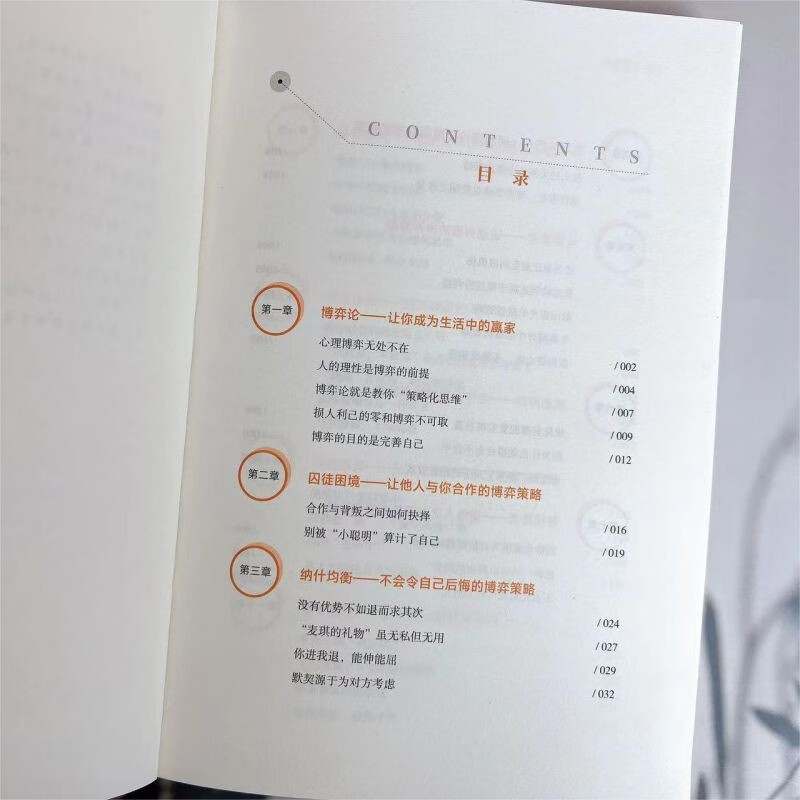 CONTENTS
目录
第一章 博弈论——让你成为生活中的赢家
心理博弈无处不在 /002
人的理性是博弈的前提 /004
博弈论就是教你“策略化思维” /007
损人利己的零和博弈不可取 /009
博弈的目的是完善自己 /012
第二章 囚徒困境——让他人与你合作的博弈策略
合作与背叛之间如何抉择 /016
别被“小聪明”算计了自己 /019
第三章 纳什均衡——不会令自己后悔的博弈策略
没有优势不如退而求其次 /024
“麦琪的礼物”虽无私但无用 /027
你进我退，能伸能屈 /029
默契源于为对方考虑 /032